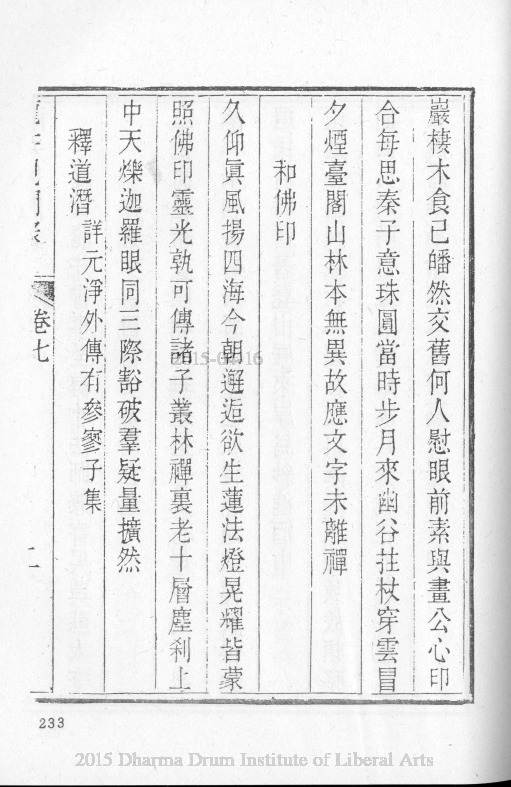 巖棲木食已皤然交舊何人慰眼前素與畫公心印
合每思秦子意珠圓當時步月來幽谷拄杖穿雲冒
夕煙臺閣山林本無異故應文字未離禪
和佛印
久仰眞風揚四海今朝邂逅欲生蓮法燈晃耀皆蒙
照佛印靈光孰可傳諸子叢林禪裏老十層塵刹上
中天爍迦羅眼同三際豁破羣疑量擴然
釋道潛 詳元淨外傳有參寥子集
卷七
233
2015 Dharma Drum Institute of Liberal Arts